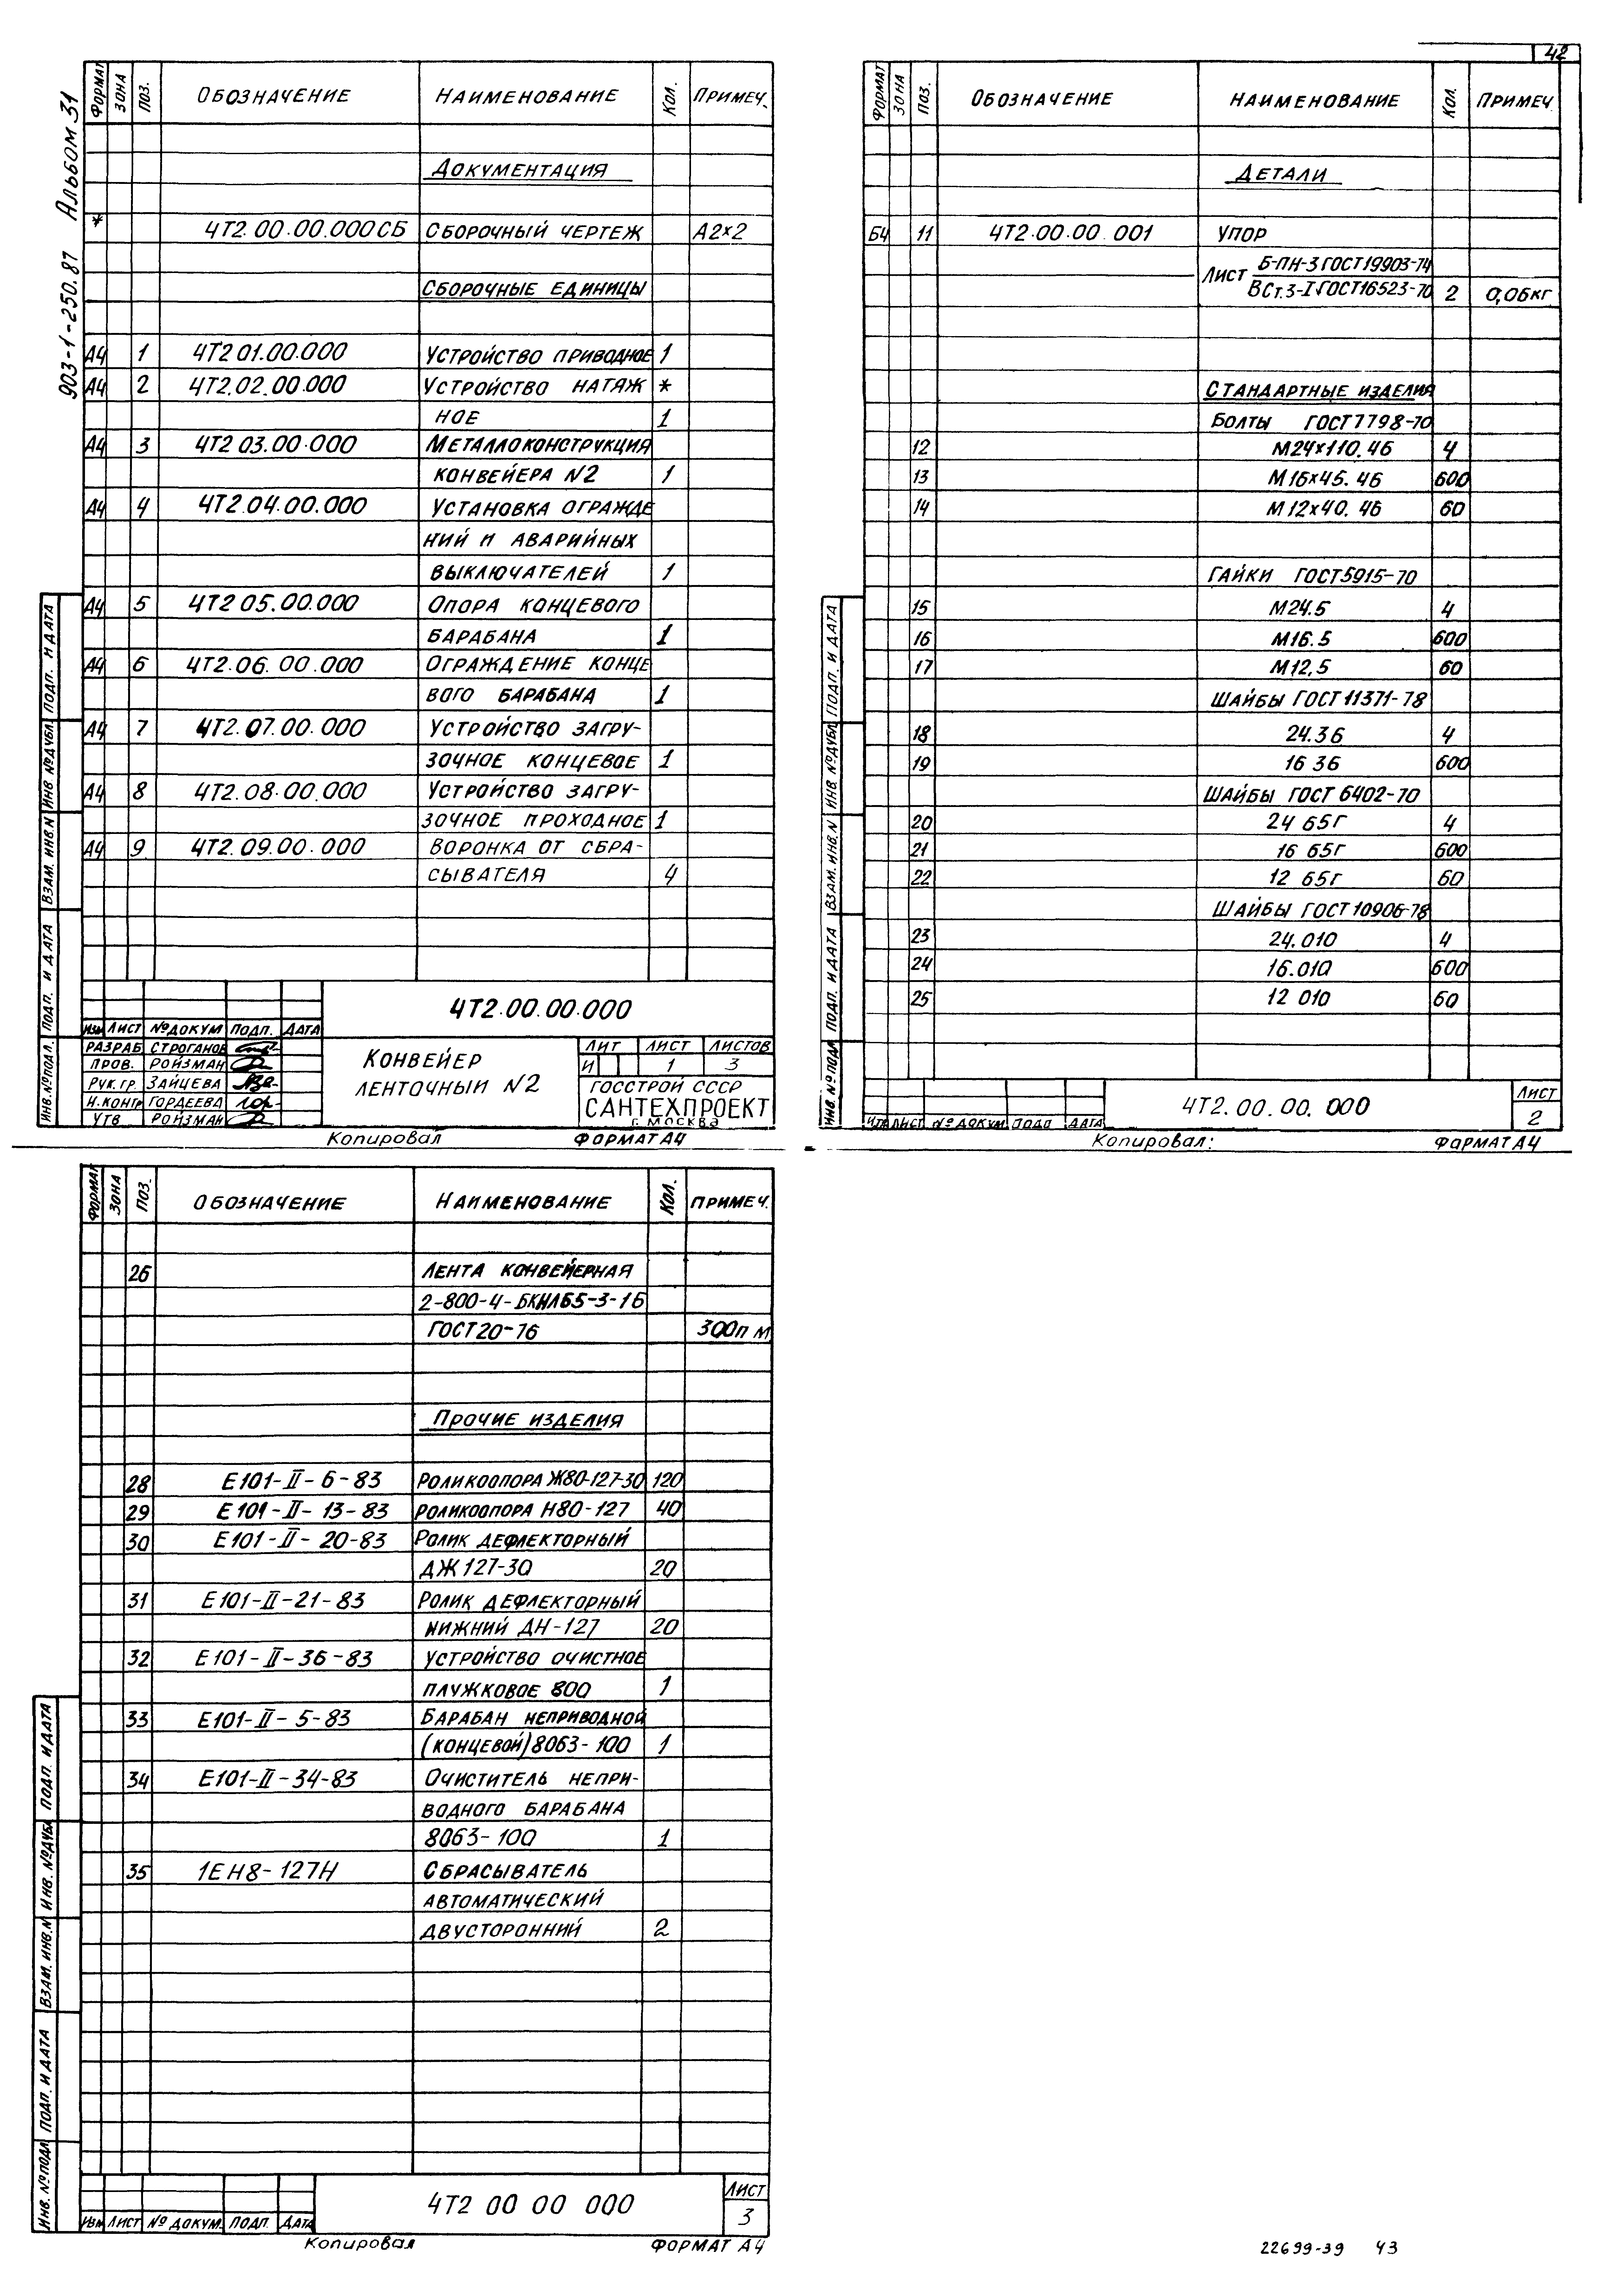 903-1-250.87 Альбом 31
Формат Зона Поз. Обозначение Наименование Кол. Примеч.
Документация
* 4Т2.00.00.000СБ Сборочный чертеж А2×2
Сборочные единицы
А4 1 4Т2 01.00.000 Устройство приводное 1
А4 2 4Т2.02.00.000 Устройство натяж *
ное 1
А4 3 4Т2 03.00.000 Металлоконструкция
конвейера N2 1
А4 4 4Т2.04.00.000 Установка огражде
ний и аварийных
выключателей 1
А4 5 4Т2 05.00.000 Опора концевого
барабана 1
А4 6 4Т2.06.00.000 Ограждение конце
вого барабана 1
А4 7 4Т2.07.00.000 Устройство загру-
зочное концевое 1
А4 8 4Т2.08.00.000 Устройство загру-
зочное проходное 1
А4 9 4Т2.09.00.000 Воронка от сбра-
сывателя 4
Инв.№подл. Подп. и дата Взам. инв.N Инв №дубл. Подп. и дата
4Т2.00.00.000
Изм Лист № докум Подп. Дата
Разраб Строганов
Пров. Ройзман
Рук. гр. Зайцева
Н.контр Гордеева
Утв Ройзман
Конвейер
ленточный N2
Лит Лист Листов
И 1 3
Госстрой СССР
САНТЕХПРОЕКТ
г. Москва
Копировал Формат А4
42
Формат Зона Поз. Обозначение Наименование Кол. Примеч
Детали
БЧ 11 4Т2.00.00.001 Упор
Лист Б-ПН-3 ГОСТ19903-74
ВСт.3-I ГОСТ16523-70 2 0,06кг
Стандартные изделия
Болты ГОСТ7798-70
12 М24×110.46 4
13 М16×45.46 600
14 М12×40.46 60
Гайки ГОСТ5915-70
15 М24.5 4
16 М16.5 600
17 М12,5 60
Шайбы ГОСТ11371-78
18 24.36 4
19 16 36 600
Шайбы ГОСТ 6402-70
20 24 65Г 4
21 16 65Г 600
22 12 65Г 60
Шайбы ГОСТ10906-78
23 24.010 4
24 16.010 600
25 12 010 60
Инв. №подл Подп. и дата Взам. инв.N Инв №дубл Подп. и дата
Изм Лист № докум Подп Дата
4Т2.00.00.000
Лист
2
Копировал: Формат А4
Формат Зона Поз. Обозначение Наименование Кол. Примеч.
26 Лента конвейерная
2-800-4-БКНЛ65-3-1Б
ГОСТ20-76 300п м
Прочие изделия
28 Е101-II-6-83 Роликоопора Ж80-127-30 120
29 Е101-II-13-83 Роликоопора Н80-127 40
30 Е101-II-20-83 Ролик дефлекторный
ДЖ127-30 20
31 Е101-II-21-83 Ролик дефлекторный
нижний ДН-127 20
32 Е101-II-36-83 Устройство очистное
плужковое 800 1
33 Е101-II-5-83 Барабан неприводной
(концевой) 8063-100 1
34 Е101-II-34-83 Очиститель непри-
водного барабана
8063-100 1
35 1ЕН8-127Н Сбрасыватель
автоматический
двусторонний 2
Инв. №подл Подп. и дата Взам. инв.N Инв. №дубл Подп. и дата
Изм Лист № докум. Подп. Дата
4Т2 00 00 000
Лист
3
Копировал Формат А4
22699-39 43